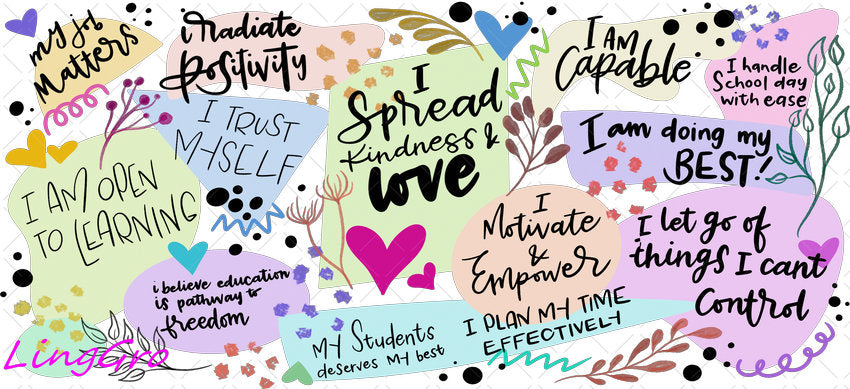 my job
Matters
i radiate
positivity
I
Spread
Kindness &
love
I AM
Capable
I handle
School day
with ease
I TRUST
MYSELF
I am doing my
BEST!
I AM OPEN
TO LEARNING
I
Motivate
&
Empower
I let go of
things I cant
Control
i believe education
is pathway to
freedom
My Students
deserves My best
I PLAN MY TIME
EFFECTIVELY
LingGro